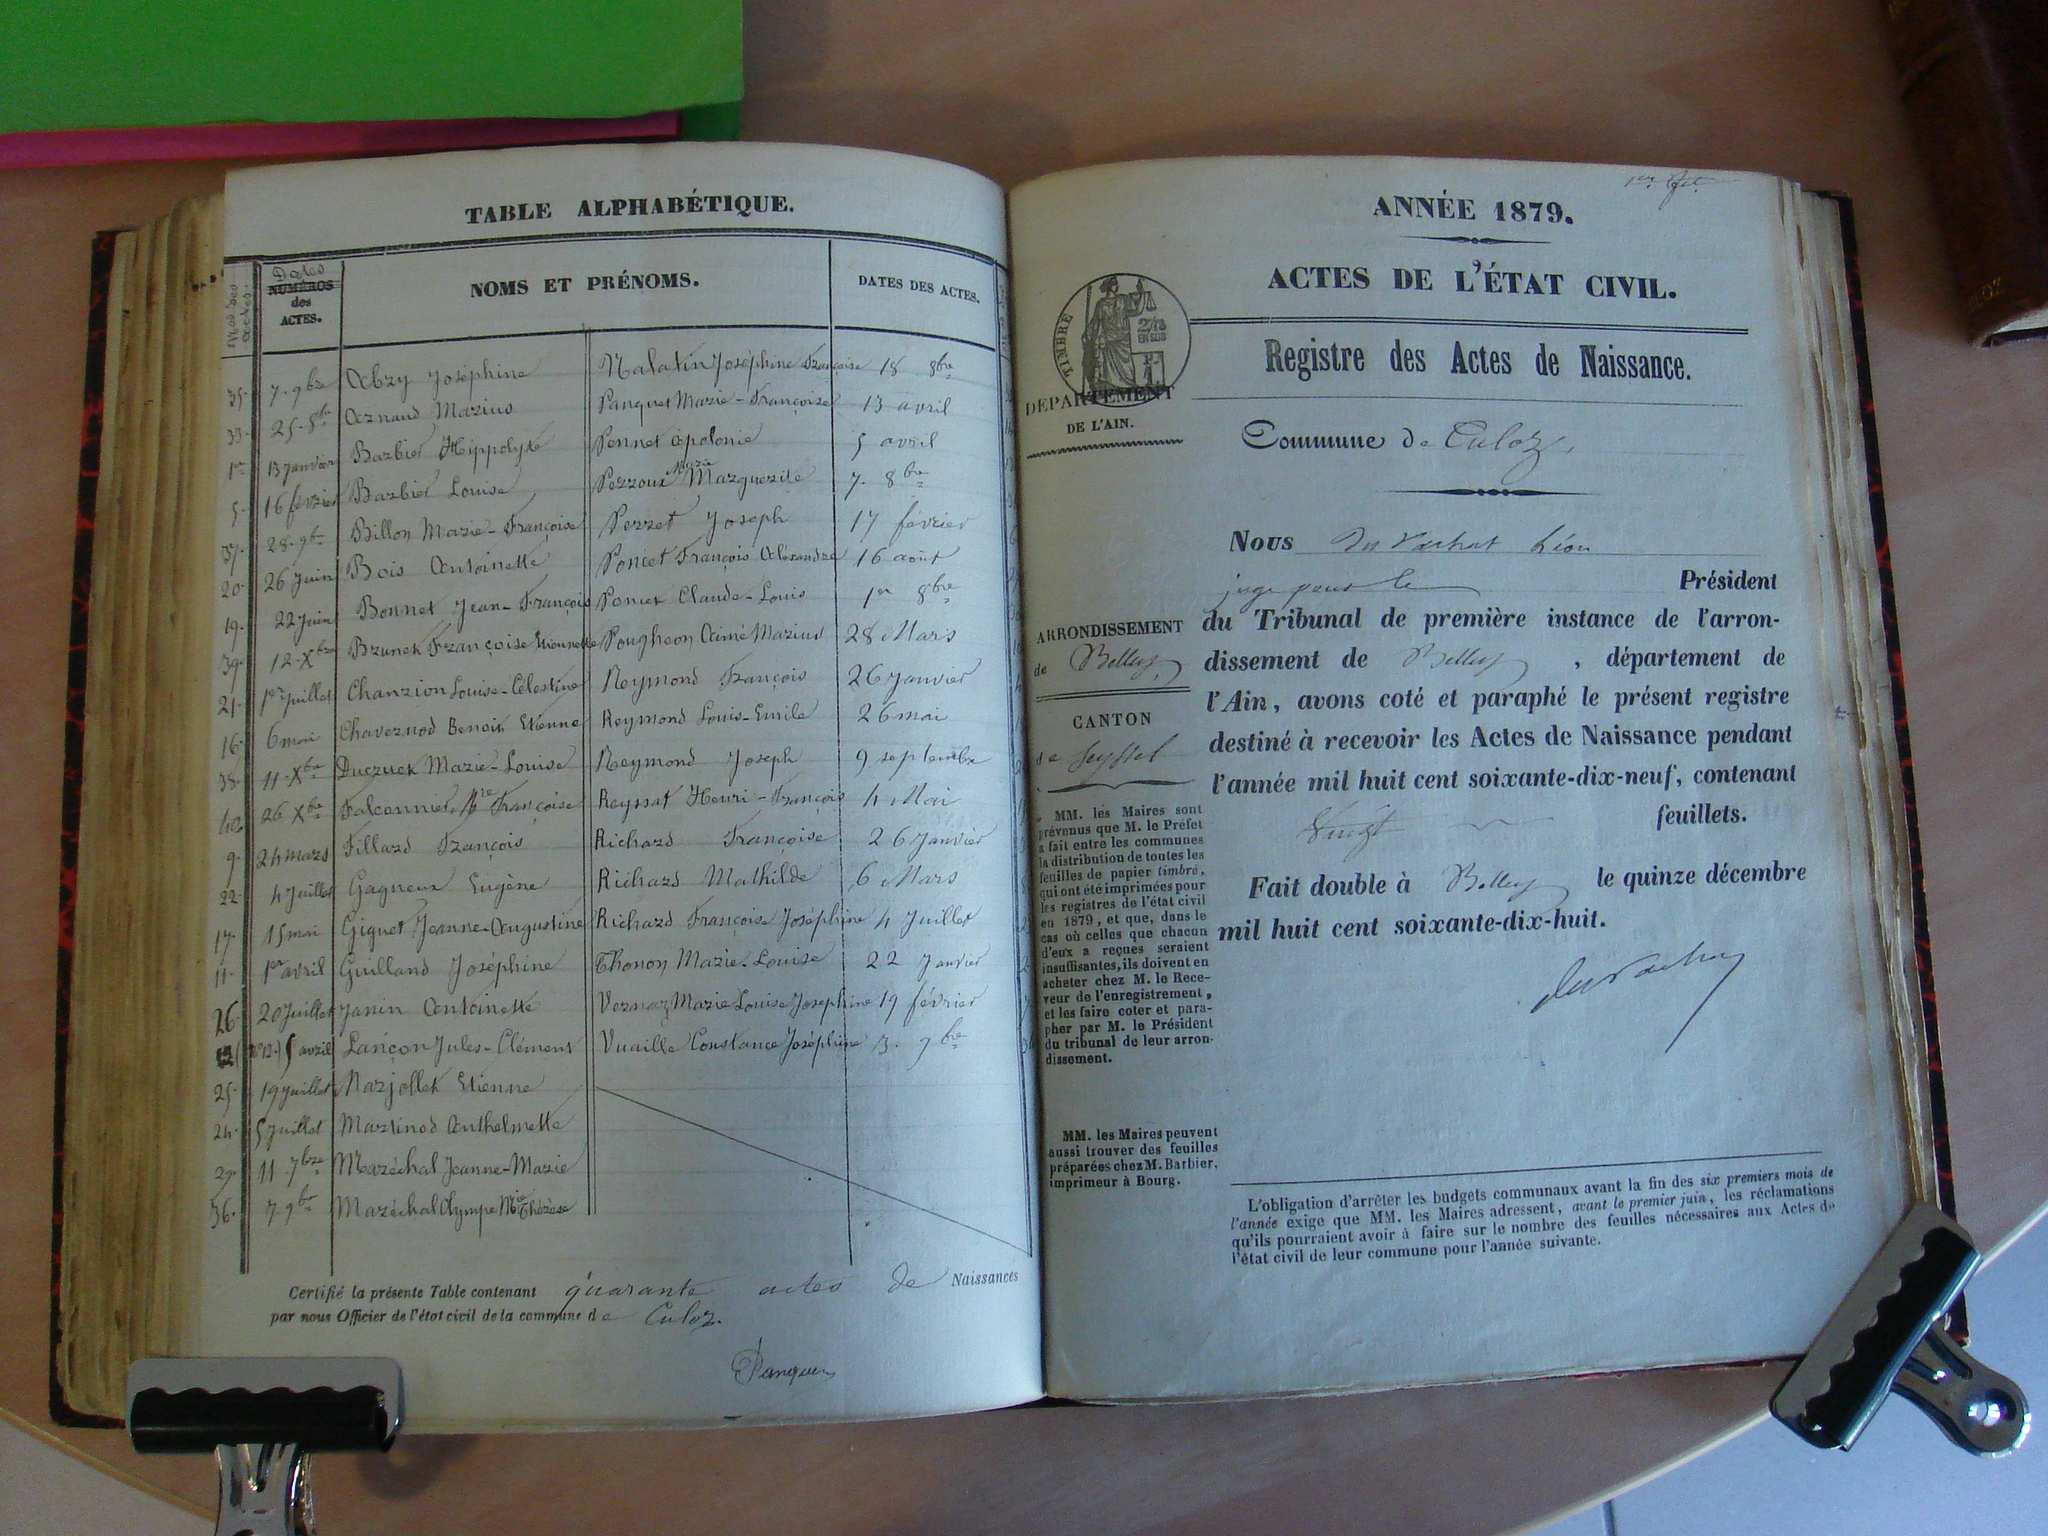 TABLE ALPHABÉTIQUE.
Nos des actes.
Dates
NUMÉROS
des
ACTES.
NOMS ET PRÉNOMS.
DATES DES ACTES.
35. 7. 9bre Abry Joséphine
33. 25. 8bre Arnaud Marius
1er 13 janvier Barbier Hippolyte
5. 16 février Barbier Louise
37. 28. 9bre Billon Marie-Françoise
20. 26 Juin Bois Antoinette
19. 22 Juin Bonnet Jean-François
39. 12. Xbre Brunet Françoise Etiennette
21. 1er Juillet Chanzion Louise-Célestine
16. 6 mai Chavernod Benoit Etienne
38. 11. Xbre Ducruet Marie-Louise
40. 26 Xbre Falconnier Mie Françoise
9. 24 mars Fillard François
22. 4 Juillet Gagneux Eugène
17. 15 mai Giquet Jeanne-Augustine
11. 1er avril Guilland Joséphine
26. 20 Juillet Janin Antoinette
(no 12.) 5 avril Lançon Jules-Clément
25. 19 Juillet Marjollet Etienne
24. 5 Juillet Martinod Anthelmette
29. 11 7bre Maréchal Jeanne-Marie
36. 7 9bre Maréchal Olympe Mie Thérèse
Malatin Joséphine Françoise 18 8bre
Panquet Marie-Françoise 13 avril
Pennet Apolonie 5 avril
Perroux Marie Marguerite 7. 8bre
Perret Joseph 17 février
Poncet François Alexandre 16 août
Poncet Claude-Louis 1er 8bre
Pougheon Aimé Marius 28 Mars
Reymond François 26 Janvier
Reymond Louis-Emile 26 mai
Reymond Joseph 9 septembre
Reyssat Henri-François 4 Mai
Richard Françoise 26 Janvier
Richard Mathilde 6 Mars
Richard Françoise Joséphine 4 Juillet
Thonon Marie-Louise 22 Janvier
Vernaz Marie Louise Josephine 19 février
Vuaille Constance Joséphine 3. 9bre
Certifié la présente Table contenant quarante actes de Naissances
par nous Officier de l'état civil de la commune de Culoz.
Panquet
1er
ANNÉE 1879.
ACTES DE L'ÉTAT CIVIL.
TIMBRE
Registre des Actes de Naissance.
DÉPARTEMENT
DE L'AIN.
Commune de Culoz.
Nous Léon
juge pour le Président
du Tribunal de première instance de l'arron-
dissement de Belley, département de
l'Ain, avons coté et paraphé le présent registre
destiné à recevoir les Actes de Naissance pendant
l'année mil huit cent soixante-dix-neuf, contenant
Vingt feuillets.
Fait double à Belley le quinze décembre
mil huit cent soixante-dix-huit.
ARRONDISSEMENT
de Belley,
CANTON
de Seyssel
MM. les Maires sont
prévenus que M. le Préfet
a fait entre les communes
la distribution de toutes les
feuilles de papier timbré,
qui ont été imprimées pour
les registres de l'état civil
en 1879, et que, dans le
cas où celles que chacun
d'eux a reçues seraient
insuffisantes, ils doivent en
acheter chez M. le Rece-
veur de l'enregistrement,
et les faire coter et para-
pher par M. le Président
du tribunal de leur arron-
dissement.
MM. les Maires peuvent
aussi trouver des feuilles
préparées chez M. Barbier,
imprimeur à Bourg.
L'obligation d'arrêter les budgets communaux avant la fin des six premiers mois de
l'année exige que MM. les Maires adressent, avant le premier juin, les réclamations
qu'ils pourraient avoir à faire sur le nombre des feuilles nécessaires aux Actes de
l'état civil de leur commune pour l'année suivante.